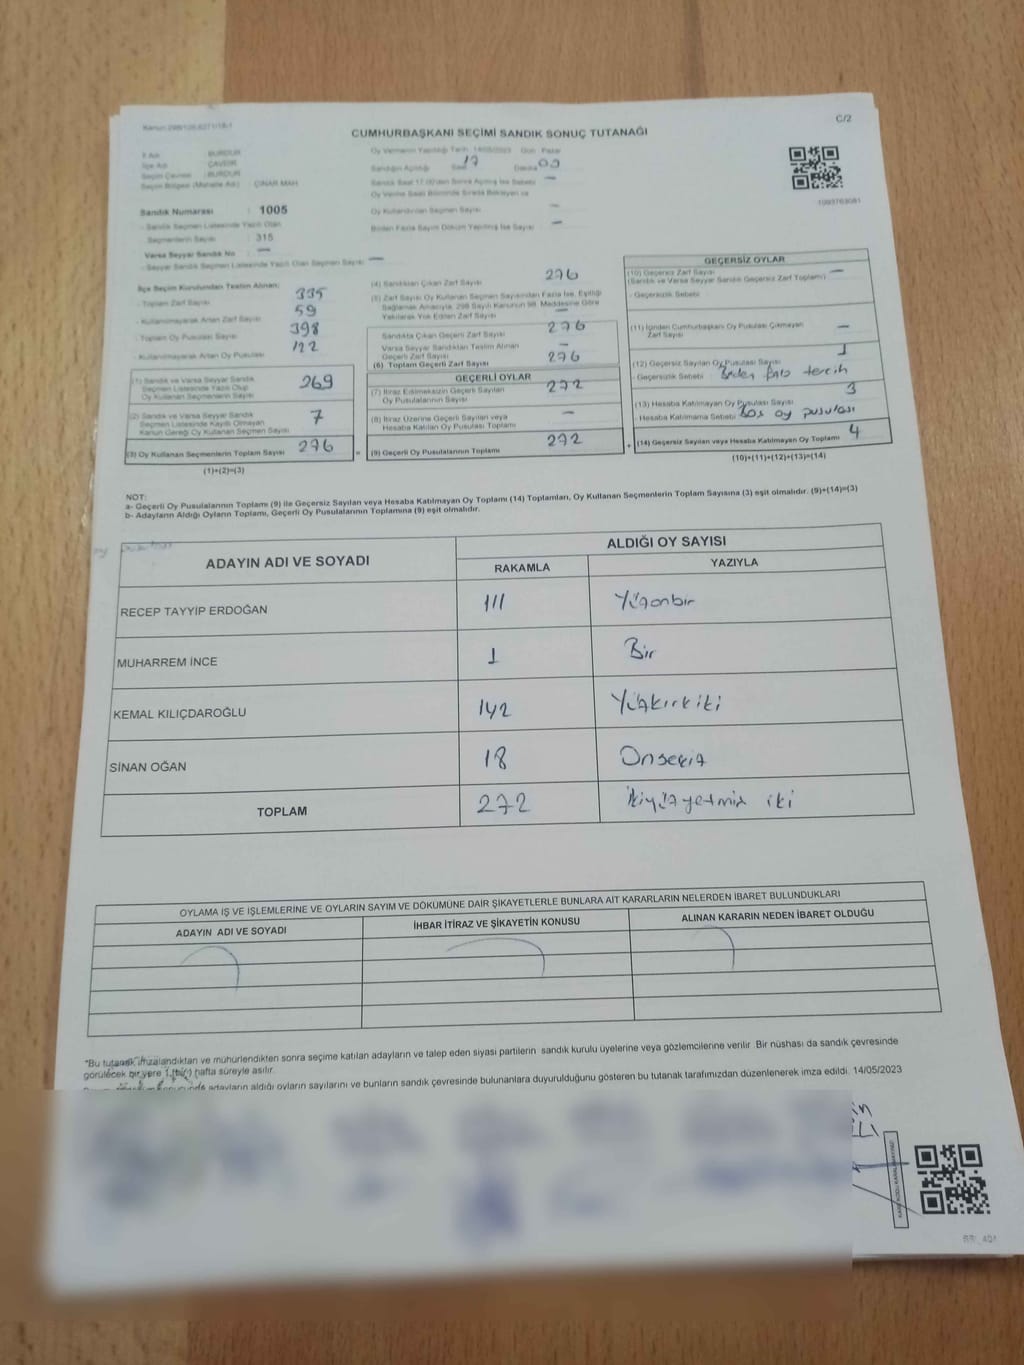 C/2
CUMHURBAŞKANI SEÇİMİ SANDIK SONUÇ TUTANAĞI
İl Adı : BURDUR
İlçe Adı : ÇAVDIR
Seçim Çevresi : BURDUR
Seçim Bölgesi (Mahalle Adı) : ÇINAR MAH
Oy Vermenin Yapıldığı Tarih 14/05/2023 Gün Pazar
Sandığın Açıldığı Saat 17 Dakika 00
Sandık Saat 17.00'den Sonra Açılmış İse Sebebi —
Oy Verme Saati Bitiminde Sırada Bekleyen ve
Oy Kullandırılan Seçmen Sayısı —
Birden Fazla Sayım Döküm Yapılmış İse Sayısı —
1093763081
Sandık Numarası : 1005
- Sandık Seçmen Listesinde Yazılı Olan
Seçmenlerin Sayısı : 315
Varsa Seyyar Sandık No : —
- Seyyar Sandık Seçmen Listesinde Yazılı Olan Seçmen Sayısı —
İlçe Seçim Kurulundan Teslim Alınan:
- Toplam Zarf Sayısı 335
- Kullanılmayarak Artan Zarf Sayısı 59
- Toplam Oy Pusulası Sayısı 398
- Kullanılmayarak Artan Oy Pusulası 122
(1) Sandık ve Varsa Seyyar Sandık
Seçmen Listesinde Yazılı Olup
Oy Kullanan Seçmen Sayısı 269
(2) Sandık ve Varsa Seyyar Sandık
Seçmen Listesinde Kayıtlı Olmayan
Kanun Gereği Oy Kullanan Seçmen Sayısı 7
(3) Oy Kullanan Seçmenlerin Toplam Sayısı 276
(1)+(2)=(3)
(4) Sandıktan Çıkan Zarf Sayısı 276
(5) Zarf Sayısı Oy Kullanan Seçmen Sayısından Fazla İse, Eşitliği
Sağlamak Amacıyla, 298 Sayılı Kanunun 98. Maddesine Göre
Yakılarak Yok Edilen Zarf Sayısı —
Sandıkta Çıkan Geçerli Zarf Sayısı 276
Varsa Seyyar Sandıktan Teslim Alınan
Geçerli Zarf Sayısı —
(6) Toplam Geçerli Zarf Sayısı 276
GEÇERLİ OYLAR
(7) İtiraz Edilmeksizin Geçerli Sayılan
Oy Pusulalarının Sayısı 272
(8) İtiraz Üzerine Geçerli Sayılan veya
Hesaba Katılan Oy Pusulası Toplamı —
= (9) Geçerli Oy Pusulalarının Toplamı 272
GEÇERSİZ OYLAR
(10) Geçersiz Zarf Sayısı —
(Sandık ve Varsa Seyyar Sandık Geçersiz Zarf Toplamı)
- Geçersizlik Sebebi
(11) İçinden Cumhurbaşkanı Oy Pusulası Çıkmayan
Zarf Sayısı —
(12) Geçersiz Sayılan Oy Pusulası Sayısı 1
- Geçersizlik Sebebi Birden fazla tercih
(13) Hesaba Katılmayan Oy Pusulası Sayısı 3
- Hesaba Katılmama Sebebi Boş oy pusulası
+ (14) Geçersiz Sayılan veya Hesaba Katılmayan Oy Toplamı 4
(10)+(11)+(12)+(13)=(14)
NOT:
a- Geçerli Oy Pusulalarının Toplamı (9) ile Geçersiz Sayılan veya Hesaba Katılmayan Oy Toplamı (14) Toplamları, Oy Kullanan Seçmenlerin Toplam Sayısına (3) eşit olmalıdır. (9)+(14)=(3)
b- Adayların Aldığı Oyların Toplamı, Geçerli Oy Pusulalarının Toplamına (9) eşit olmalıdır.
ADAYIN ADI VE SOYADI
ALDIĞI OY SAYISI
RAKAMLA YAZIYLA
RECEP TAYYİP ERDOĞAN 111 Yüzonbir
MUHARREM İNCE 1 Bir
KEMAL KILIÇDAROĞLU 142 Yüzkırkiki
SİNAN OĞAN 18 Onsekiz
TOPLAM 272 ikiyüzyetmiş iki
OYLAMA İŞ VE İŞLEMLERİNE VE OYLARIN SAYIM VE DÖKÜMÜNE DAİR ŞİKAYETLERLE BUNLARA AİT KARARLARIN NELERDEN İBARET BULUNDUKLARI
ADAYIN ADI VE SOYADI İHBAR İTİRAZ VE ŞİKAYETİN KONUSU ALINAN KARARIN NEDEN İBARET OLDUĞU
*Bu tutanak imzalandıktan ve mühürlendikten sonra seçime katılan adayların ve talep eden siyasi partilerin sandık kurulu üyelerine veya gözlemcilerine verilir. Bir nüshası da sandık çevresinde
görülecek bir yere 1 (bir) hafta süreyle asılır.
adayların aldığı oyların sayılarını ve bunların sandık çevresinde bulunanlara duyurulduğunu gösteren bu tutanak tarafımızdan düzenlenerek imza edildi. 14/05/2023